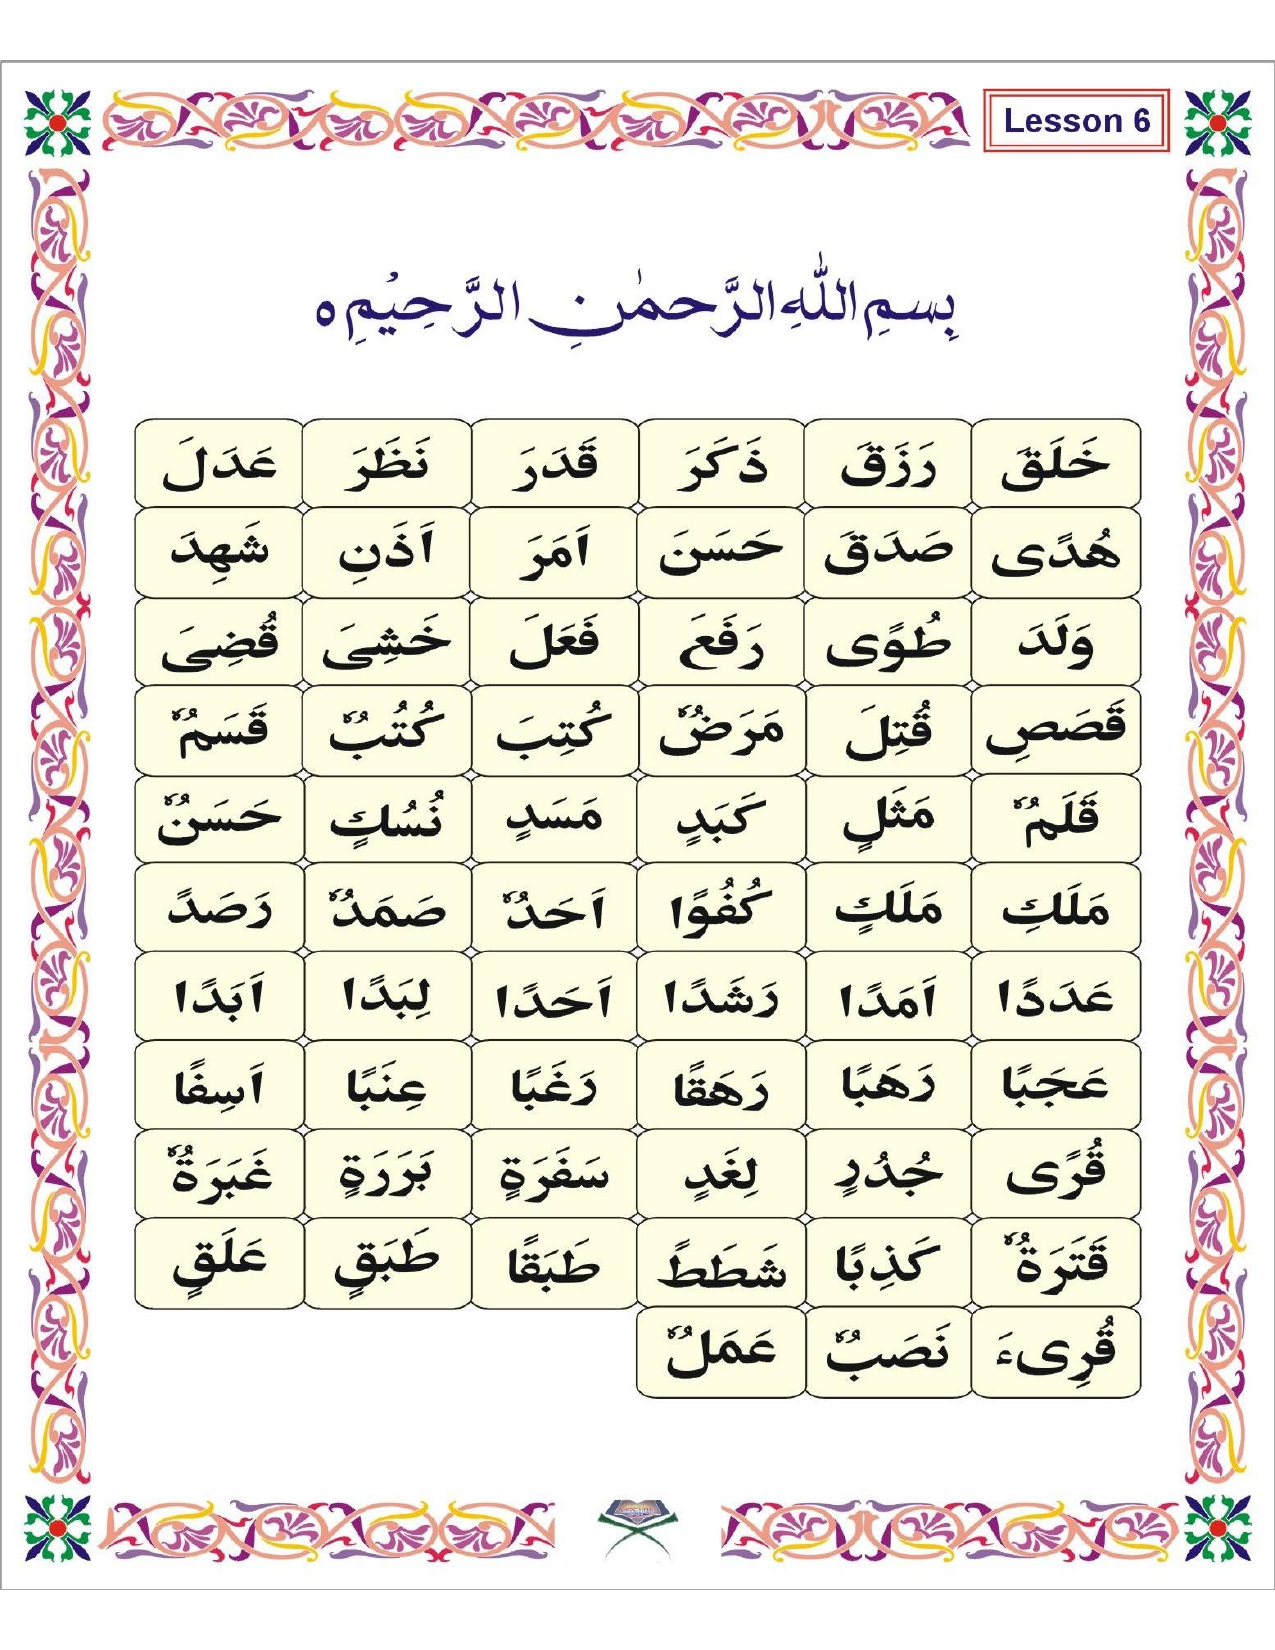 Lesson 6
بِسمِ اللّٰهِ الرَّحمٰنِ الرَّحِيُمِ ه
خَلَقَ رَزَقَ ذَكَرَ قَدَرَ نَظَرَ عَدَلَ
هُدًى صَدَقَ حَسَنَ اَمَرَ اَذَنِ شَهِدَ
وَلَدَ طُوًى رَفَعَ فَعَلَ خَشِىَ قُضِىَ
قَصَصِ قُتِلَ مَرَضٌ كُتِبَ كُتُبٌ قَسَمٌ
قَلَمٌ مَثَلٍ كَبَدٍ مَسَدٍ نُسُكٍ حَسَنٌ
مَلَكِ مَلَكٍ كُفُوًا اَحَدٌ صَمَدٌ رَصَدً
عَدَدًا اَمَدًا رَشَدًا اَحَدًا لِبَدًا اَبَدًا
عَجَبًا رَهَبًا رَهَقًا رَغَبًا عِنَبًا اَسِفًا
قُرًى جُدُرٍ لِغَدٍ سَفَرَةٍ بَرَرَةٍ غَبَرَةٌ
قَتَرَةٌ كَذِبًا شَطَطً طَبَقًا طَبَقٍ عَلَقٍ
قُرِىءَ نَصَبٌ عَمَلٌ